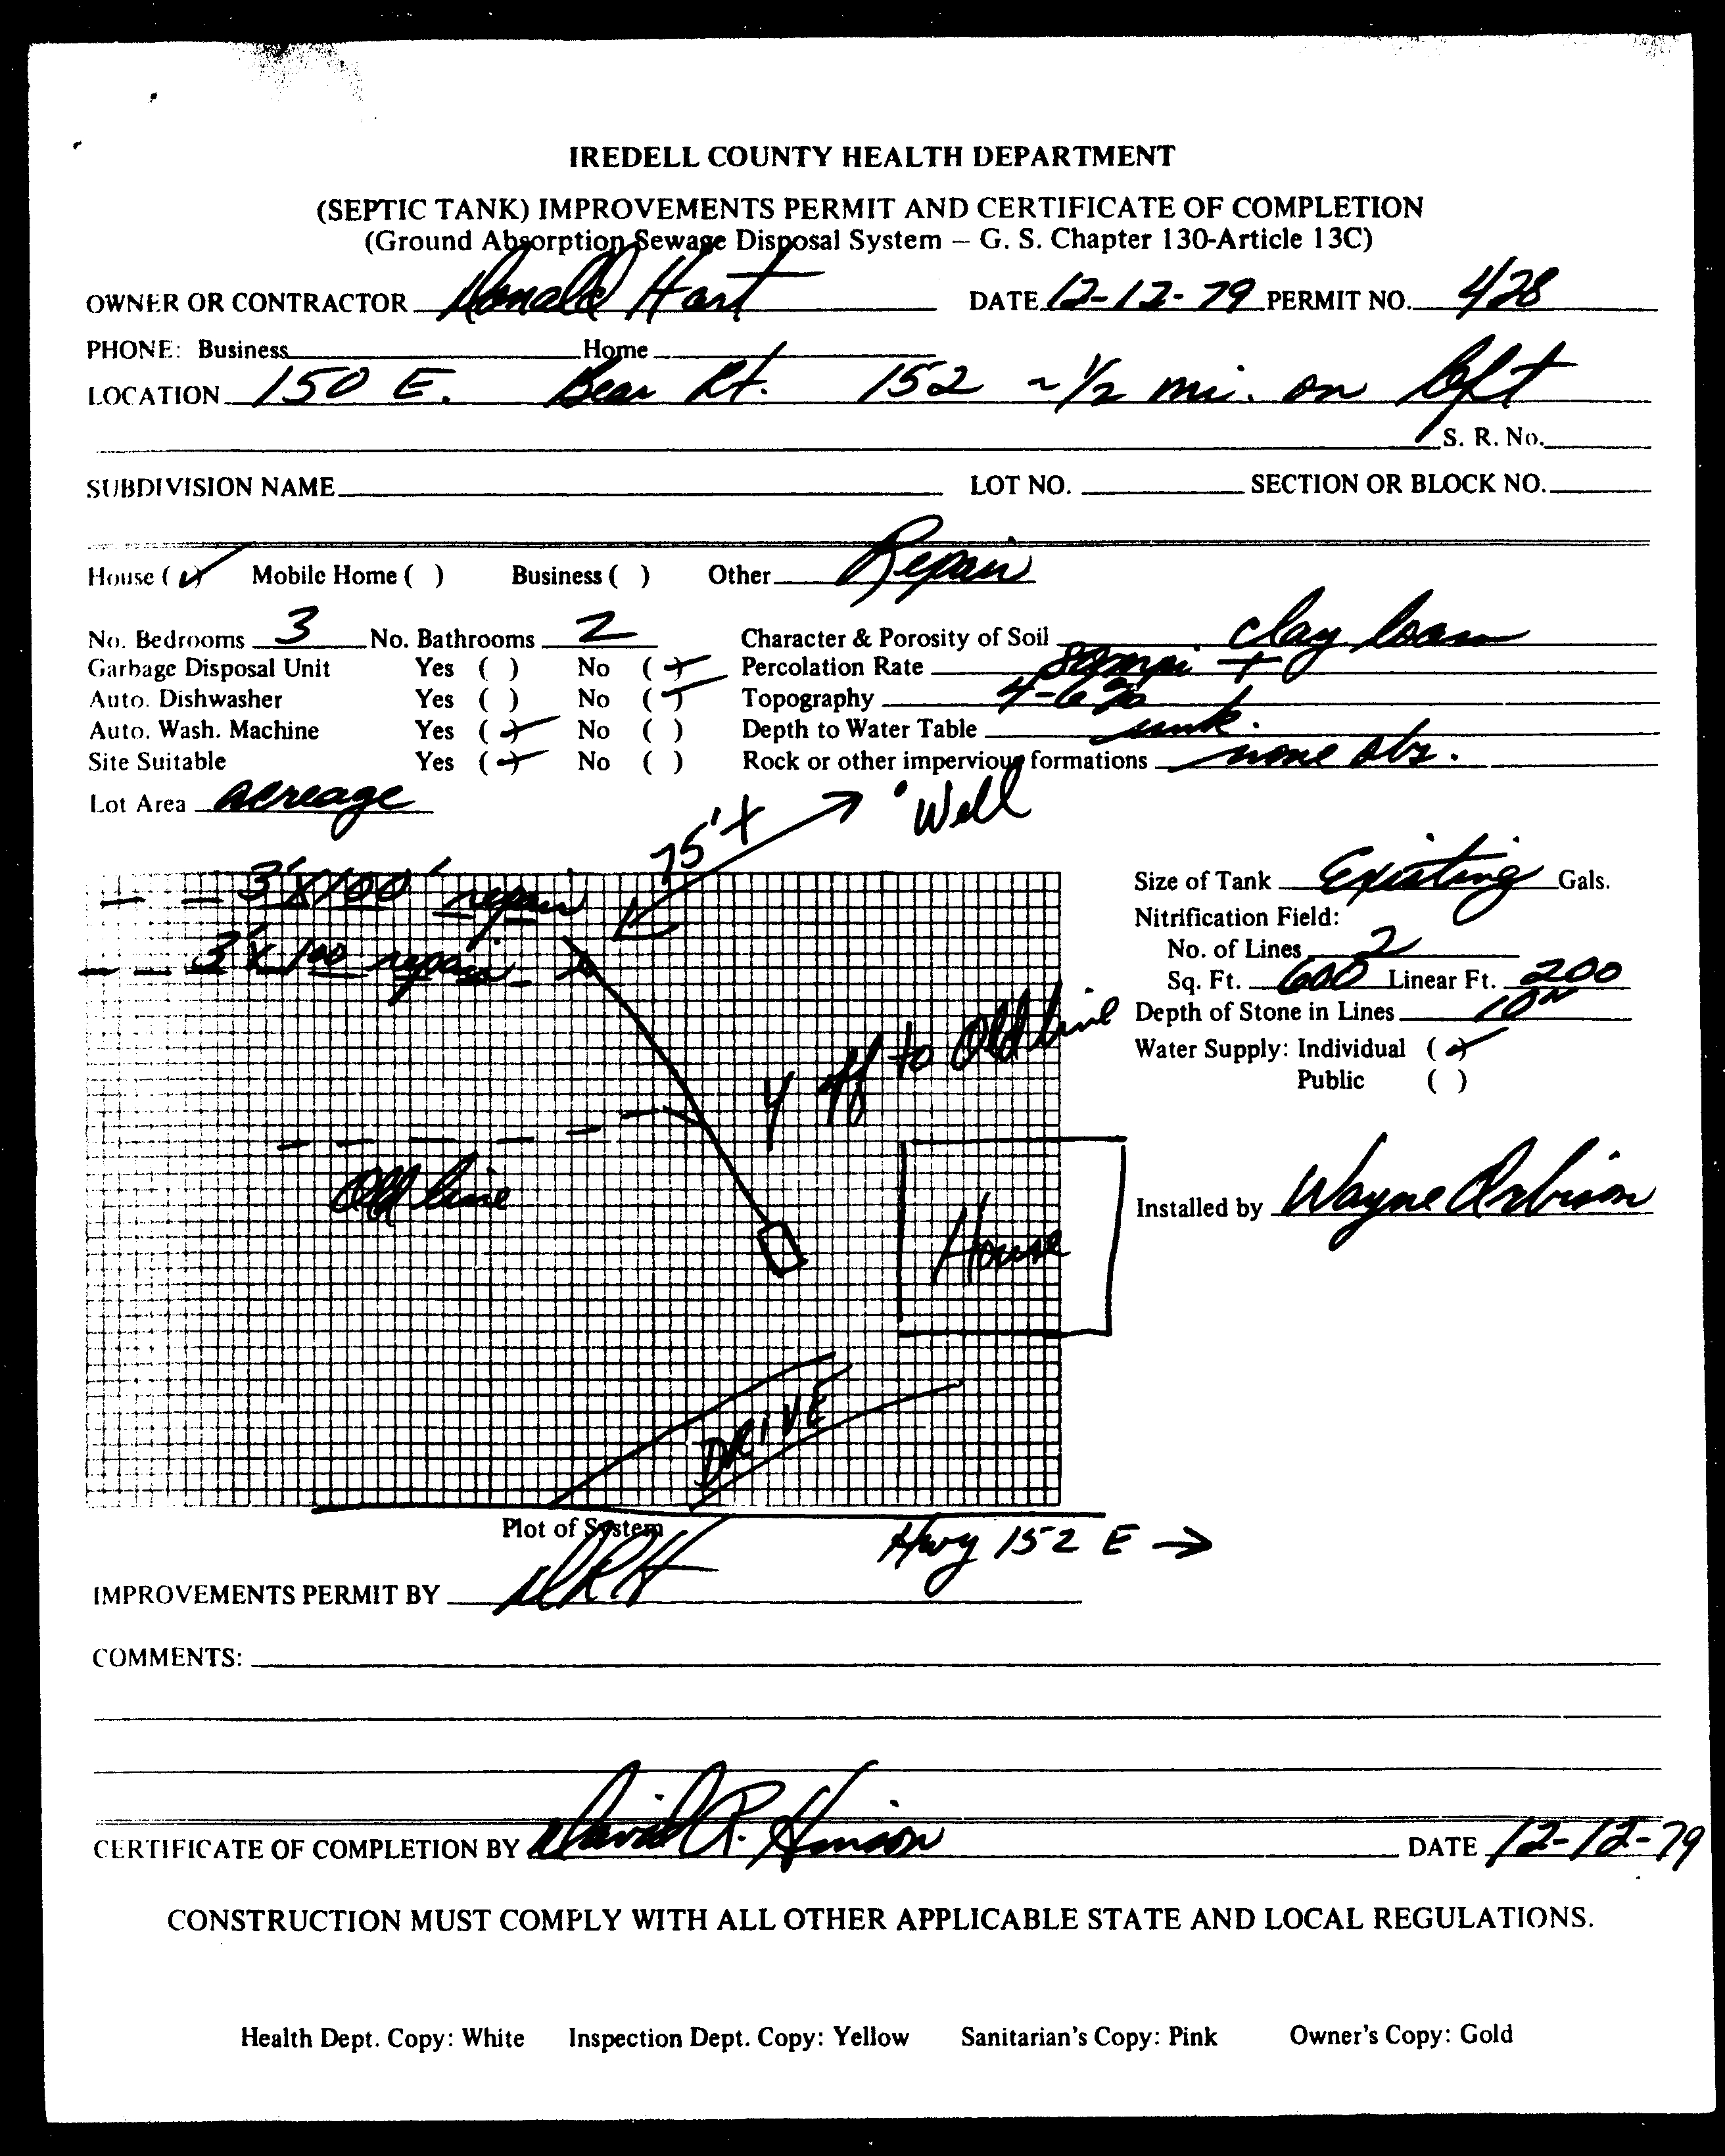 IREDELL COUNTY HEALTH DEPARTMENT
(SEPTIC TANK) IMPROVEMENTS PERMIT AND CERTIFICATE OF COMPLETION
(Ground Absorption Sewage Disposal System – G. S. Chapter 130-Article 13C)
OWNER OR CONTRACTOR Donald Hart DATE 12-12-79 PERMIT NO. 428
PHONE: Business Home
LOCATION 150 E. Bear Rt. 152 ~ 1/2 mi. on left
S. R. No.
SUBDIVISION NAME LOT NO. SECTION OR BLOCK NO.
House (✓) Mobile Home ( ) Business ( ) Other Repair
No. Bedrooms 3 No. Bathrooms 2 Character & Porosity of Soil clay loam
Garbage Disposal Unit Yes ( ) No (✓) Percolation Rate 80mpi +
Auto. Dishwasher Yes ( ) No (✓) Topography 4-6%
Auto. Wash. Machine Yes (✓) No ( ) Depth to Water Table unk.
Site Suitable Yes (✓) No ( ) Rock or other impervious formations none obs.
Lot Area acreage
75'+ Well
3'X100' repair
3'X100 repair
Y off to Old line
Old line
House
DRIVE
Size of Tank Existing Gals.
Nitrification Field:
No. of Lines 2
Sq. Ft. 600 Linear Ft. 200
Depth of Stone in Lines 10"
Water Supply: Individual (✓)
Public ( )
Installed by Wayne
Plot of System
Hwy 152 E →
IMPROVEMENTS PERMIT BY DRH
COMMENTS:
CERTIFICATE OF COMPLETION BY David R. Hinson DATE 12-12-79
CONSTRUCTION MUST COMPLY WITH ALL OTHER APPLICABLE STATE AND LOCAL REGULATIONS.
Health Dept. Copy: White Inspection Dept. Copy: Yellow Sanitarian's Copy: Pink Owner's Copy: Gold